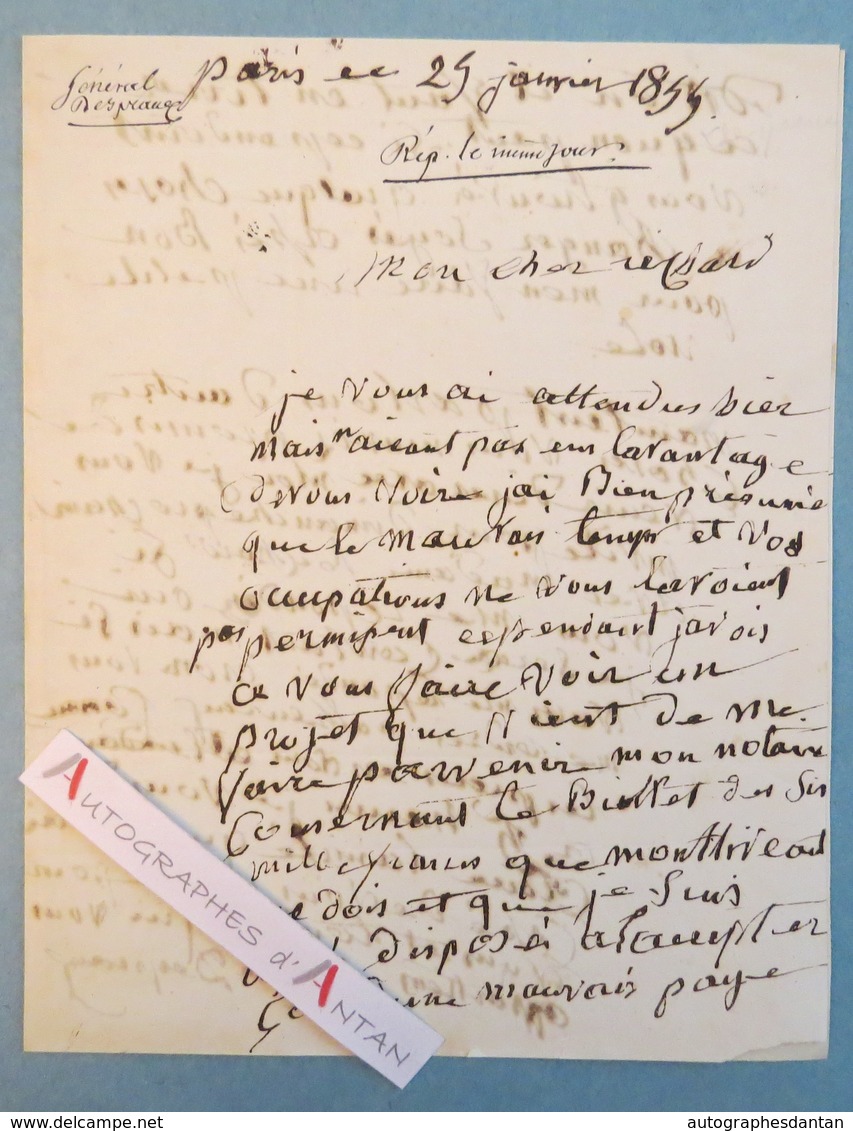 Général
Despraux
Paris ce 25 janvier 1855
Rép. le même jour.
Mon cher
je vous ai attendus hier
mais n'aiant pas eus lavantage
de vous voire jai Bien présumé
que le mauvais temps et vos
ocupations ne vous lavoient
pas permisent cependant javois
a vous faire voir un
projet que vient de me
faire parvenir mon notaire
Consernant le Billet des Six
mille francs que
me dois et que je suis
disposé a
mauvais paye
AUTOGRAPHES d'ANTAN
delcampe.net
autographesdantan